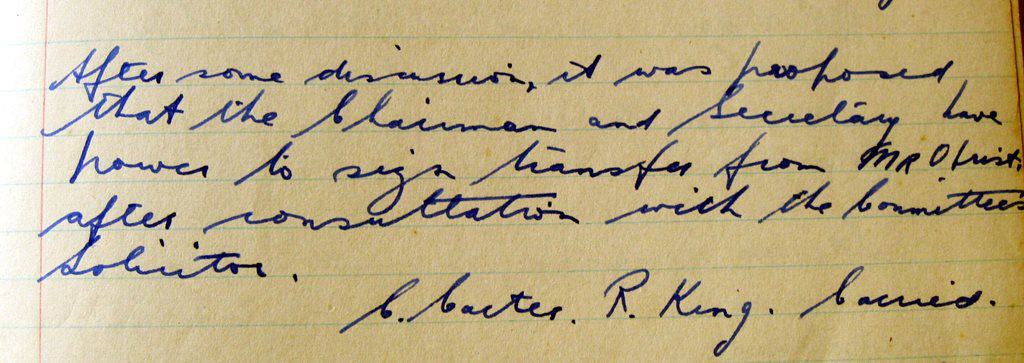 After some discussion, it was proposed
that the Chairman and Secretary have
power to sign transfer from MR
after consultation with the Committee's
Solicitor.
C. Carter. R. King. Carried.